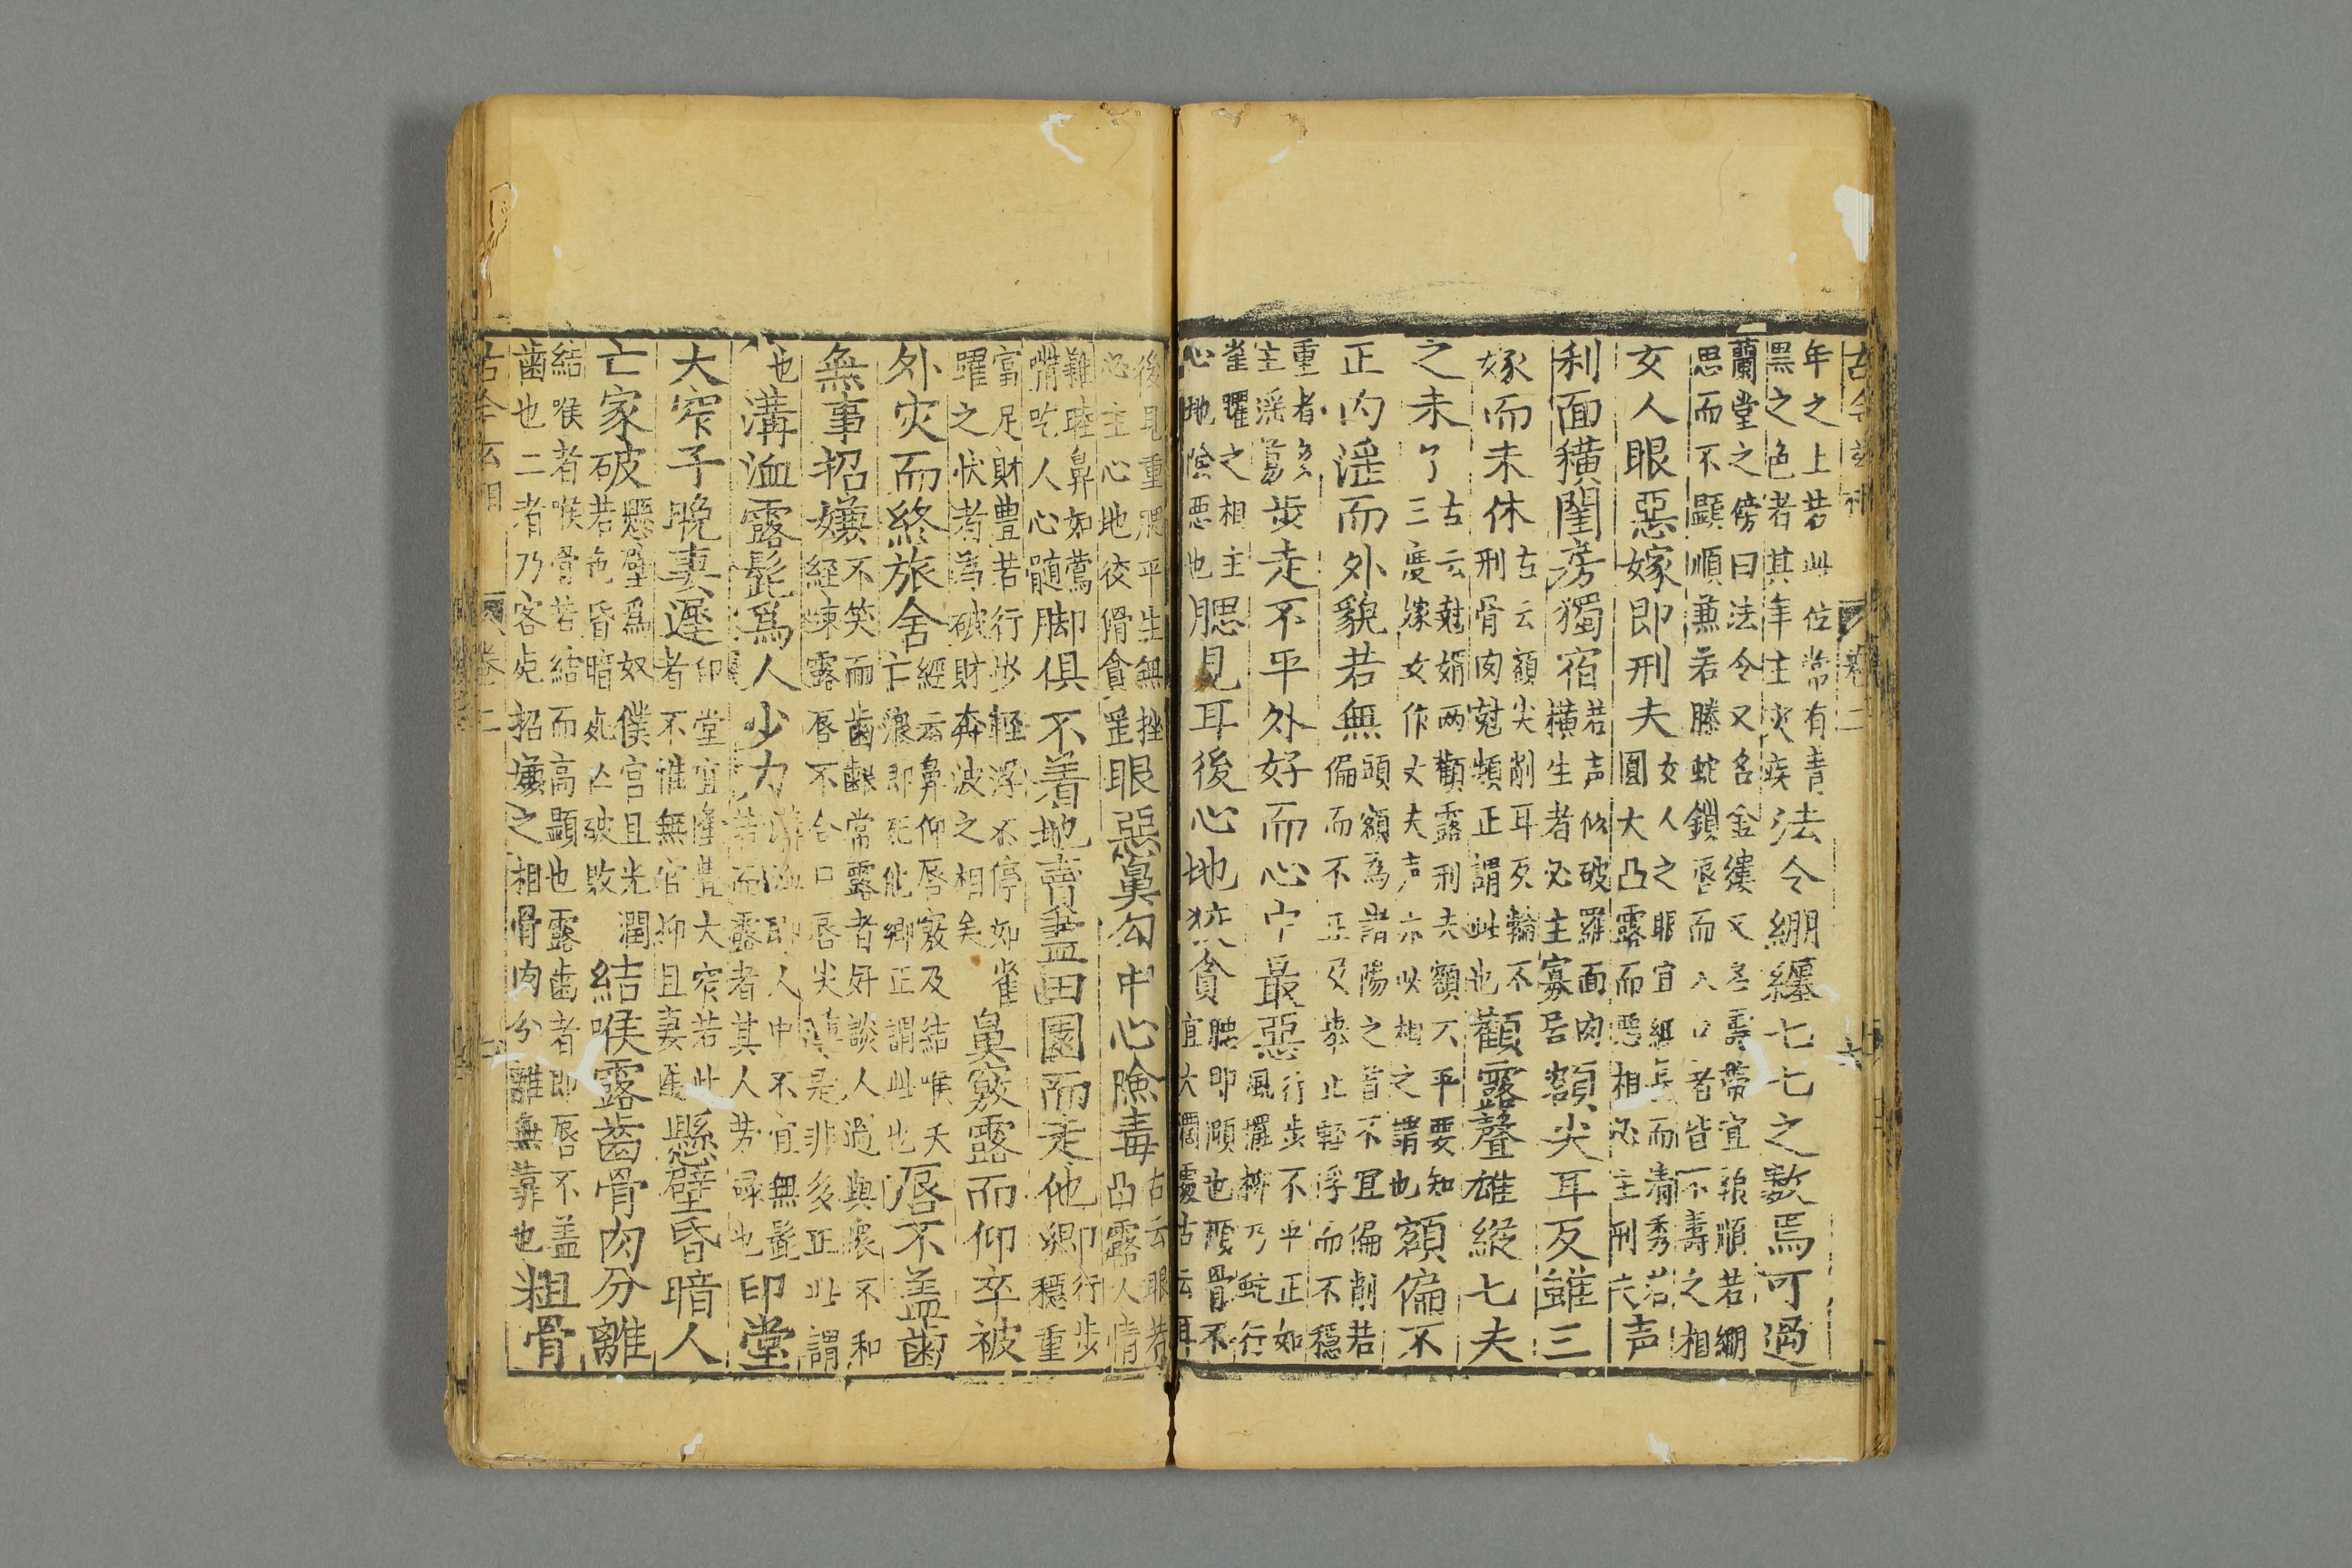 年之上若此位常有青
黑之色者其年主灾疾
法令綳纏七七之數焉可過
蘭堂之傍曰法令又名金縷又名壽帶宜順若綳
思而不顯順兼若螣蛇鎖唇而入口者皆不壽之相
女人眼惡嫁即刑夫
女人之眼宜細長而清秀若
圓大凸露而惡相必主刑夫
声
利面横閨房獨宿
若声似破羅面肉
横生者必主寡居
額尖耳反雖三
嫁而未休
古云額尖削耳反輪不
刑骨肉剋頻正謂此也
顴露聲雄縱七夫
之未了
古云剋婿兩顴露刑夫額不平要知
三度嫁女作丈夫声亦以相之謂也
額偏不
正内淫而外貌若無
頭額為諸陽之首不宜偏削若
偏而不正及舉止輕浮而不穩
重者多
主淫蕩
步走不平外好而心中最惡
行步不平正如
風擺柳乃蛇行
雀躍之相主
心地陰惡也
腮見耳後心地狡貪
腮即頤也頤骨不
宜大濶露古云耳
後見重腮平生無挫
必主心地狡猾貪
眼惡鼻勾中心險毒
古云眼若
凸露人情
難睦鼻如鷹
嘴吃人心髓
脚俱不着地賣盡田園而走他
即行步
穩重
富足財豊若行步輕浮不停如雀
躍之状者為破財奔波之相矣
鼻竅露而仰卒被
外灾而終旅舍
經云鼻仰唇竅及結喉夭
亡浪即死他鄉正謂此也
唇不盖齒
無事招嫌
不笑而齒齦常露者好談人過與衆不和
經啖露唇不合口唇尖是非多正此謂
也
溝洫露髭爲人少力
即人中不宜無髭
若而露者其人劳碌也
印堂
大窄子晚妻遲
印堂宜隆豊大窄若此
者不惟無官抑且妻遲
懸壁昏暗人
亡家破
懸壁爲奴僕宫且光潤
若色昏暗處亡破敗
結喉露齒骨肉分離
結喉者喉骨若結而高顯也露齒者即唇不盖
齒也二者乃客死招嫌之相骨肉分離無靠也
粗骨